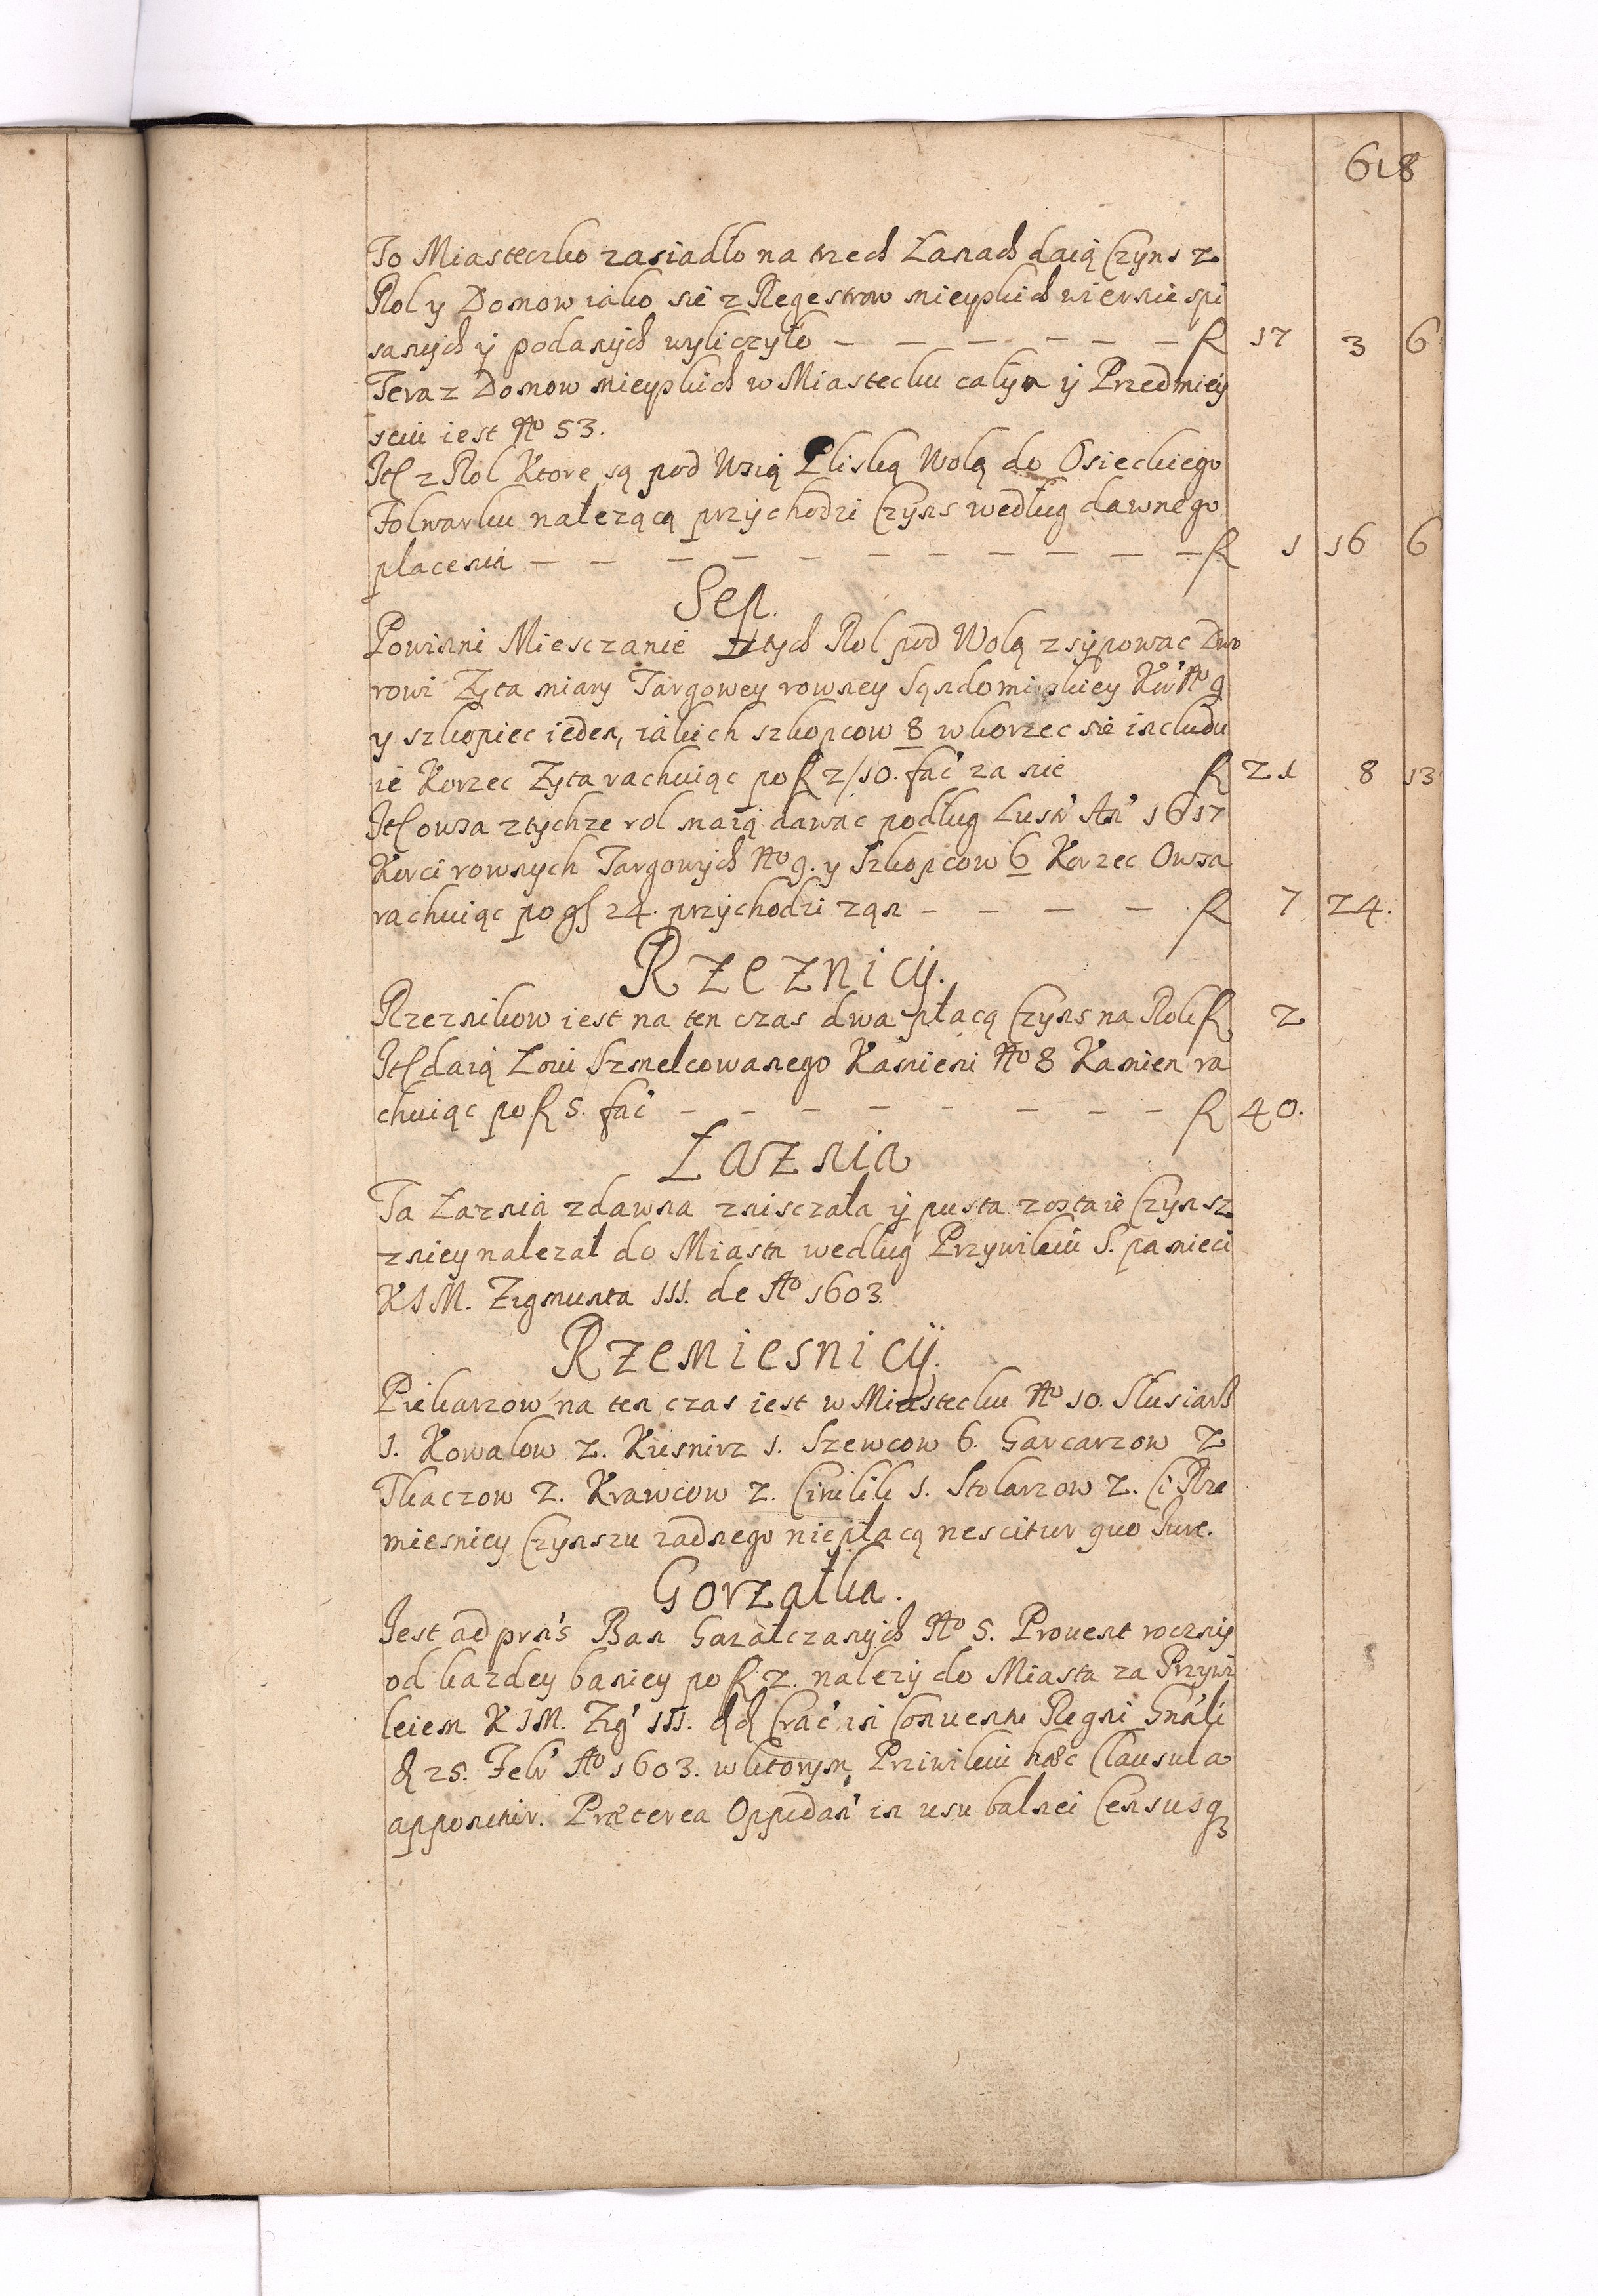 618
To Miasteczko zasiadło na trzech Łanach daią Czyns z
Rol y Domow iako sie z Regestrow mieyskich wiernie spi
sanych ÿ podanÿch wyliczyło — — — — — — fl 17 3 6
Teraz Domow mieyskich w Miastecku całÿm ÿ Przedmieÿ
sciu iest No 53.
Itt z Rol Ktore są pod Wsią Pliską Wolą do Osieckiego
Folwarku nalezącą przÿchodzi Czÿns według dawnego
płacenia — — — — — — — — — — fl 1 16 6
Sep.
Powinni Miesczanie z tÿch Rol pod Wolą zsÿpowac Dwo
rowi Zÿta miary Targoweÿ rowneÿ Sąndomirskieÿ Kor No 9
y szkopiec ieden, iakich szkopcow 8 w korzec sie includu
ie Korzec Zÿta rachuiąc po fl 2/10. fac' za nie fl 21 8 13
Itt owsa z tychze rol maią dawac podług Lus͠tr An' 1617
Korci rownÿch Targowÿch No 9. y Szkopcow 6 Korzec Owsa
rachuiąc po gſ 24. przÿchodzi ząn — — — — fl 7 24.
Rzeznicÿ.
Rzeznikow iest na ten czas dwa płacą Czÿns na Rok fl 2
Itt daią Łoiu Szmelcowanego Kamieni No 8 Kamien ra
chuiąc po fl 5. fac' — — — — — — — — fl 40.
Łaznia
Ta Łaznia zdawna znisczała ÿ pusta zostaie Czÿnsz
z nieÿ nalezał do Miasta według Przÿwileiu S. pamieci
K I M. Zigmunta III. de Ao 1603.
Rzemiesnicÿ.
Piekarzow na ten czas iest w Miastecku No 10. Slusiarz
1. Kowalow 2. Kusnirz 1. Szewcow 6. Garcarzow 2
Tkaczow 2. Krawcow 2. Cirulik 1. Stolarzow 2. Ci Rze
miesnicÿ Czÿnszu zadnego niepłacą nescitur quo Iure.
Gorzałka.
Iest ad prn's Ban Gazałczanÿch No 5. Prouent rocznÿ
od kazdeÿ banieÿ po fl 2. nalezÿ do Miasta za Przÿwi
leiem K I M. Zig' III. dd Crac' in Conuentu Regni Gn'ali
d 25. Feb' Ao 1603. w ktorÿm Priwileiu hæc Clausula
apponitur. Præterea Oppidan' in usu balnei Censusq3